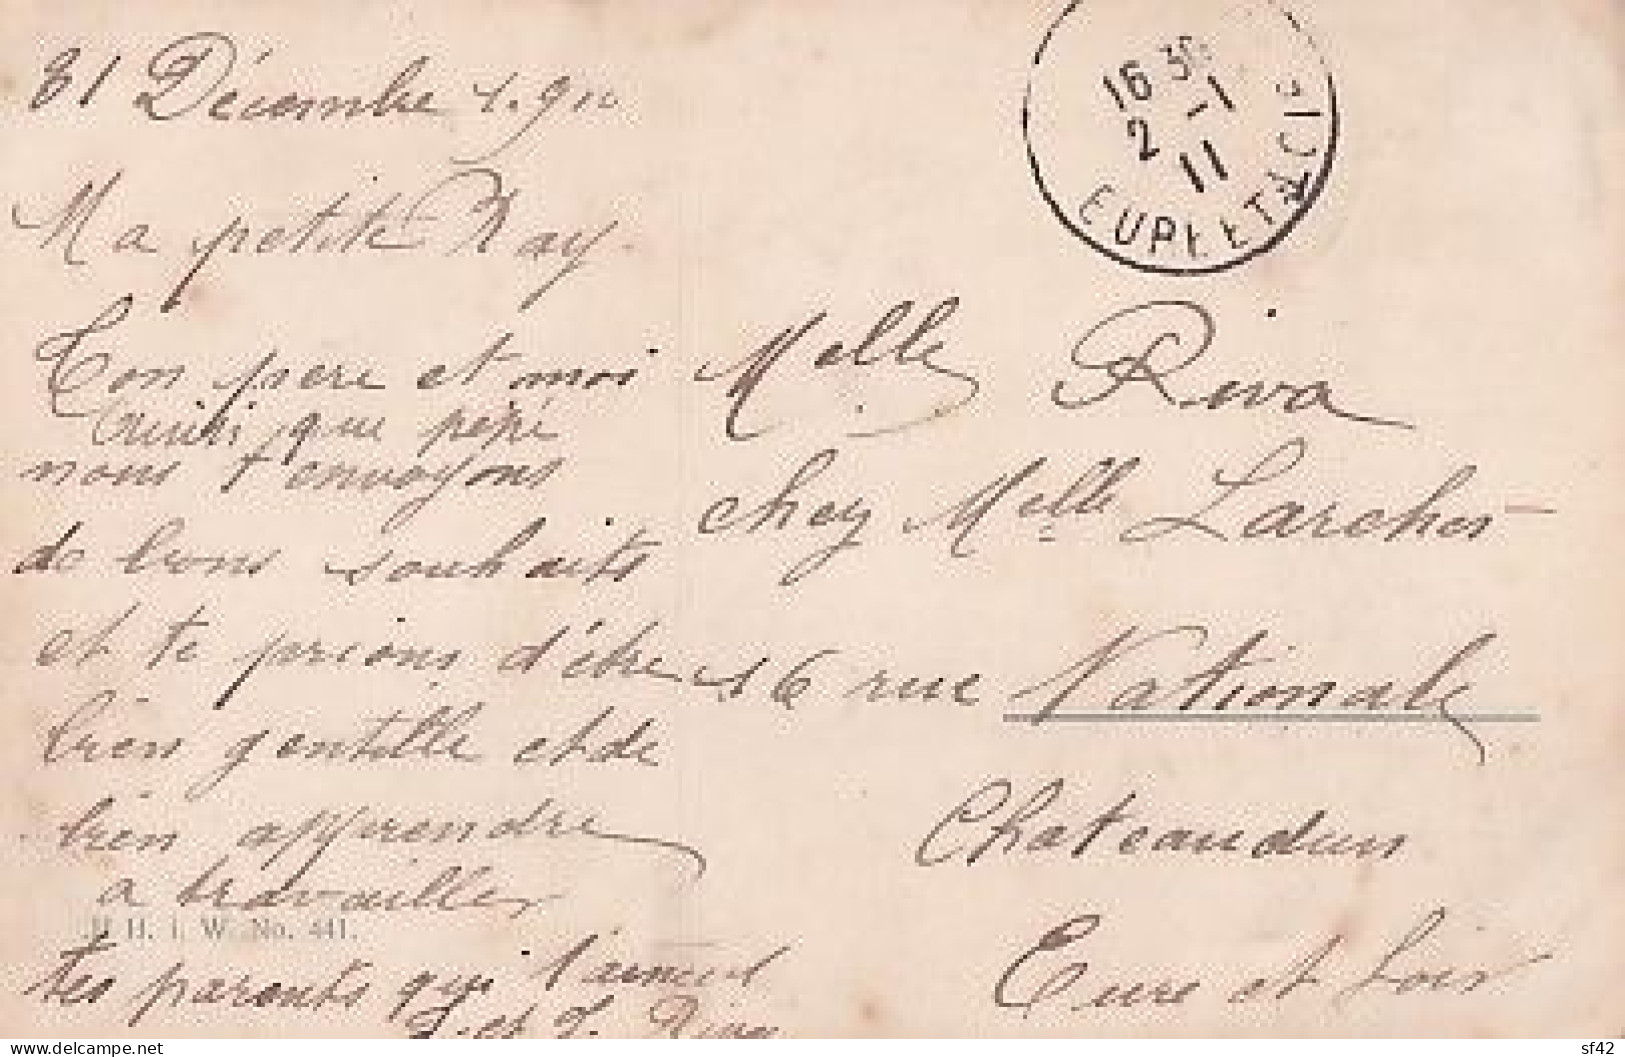 31 Décembre 1.910
Ma petite Ray.
Ton père et moi
ainsi que pépé
nous t'envoyons
de bons souhaits
et te prions d'être
bien gentille et de
bien apprendre
a travailler
H. H. i. W. No. 441.
tes parents qui t'aiment
et J. Riva
16 30
2 -1
11
EURE ET
Melle Riva
chez Melle Larcher
16 rue Nationale
Chateaudun
Eure et Loir
https://www.delcampe.net
sf42